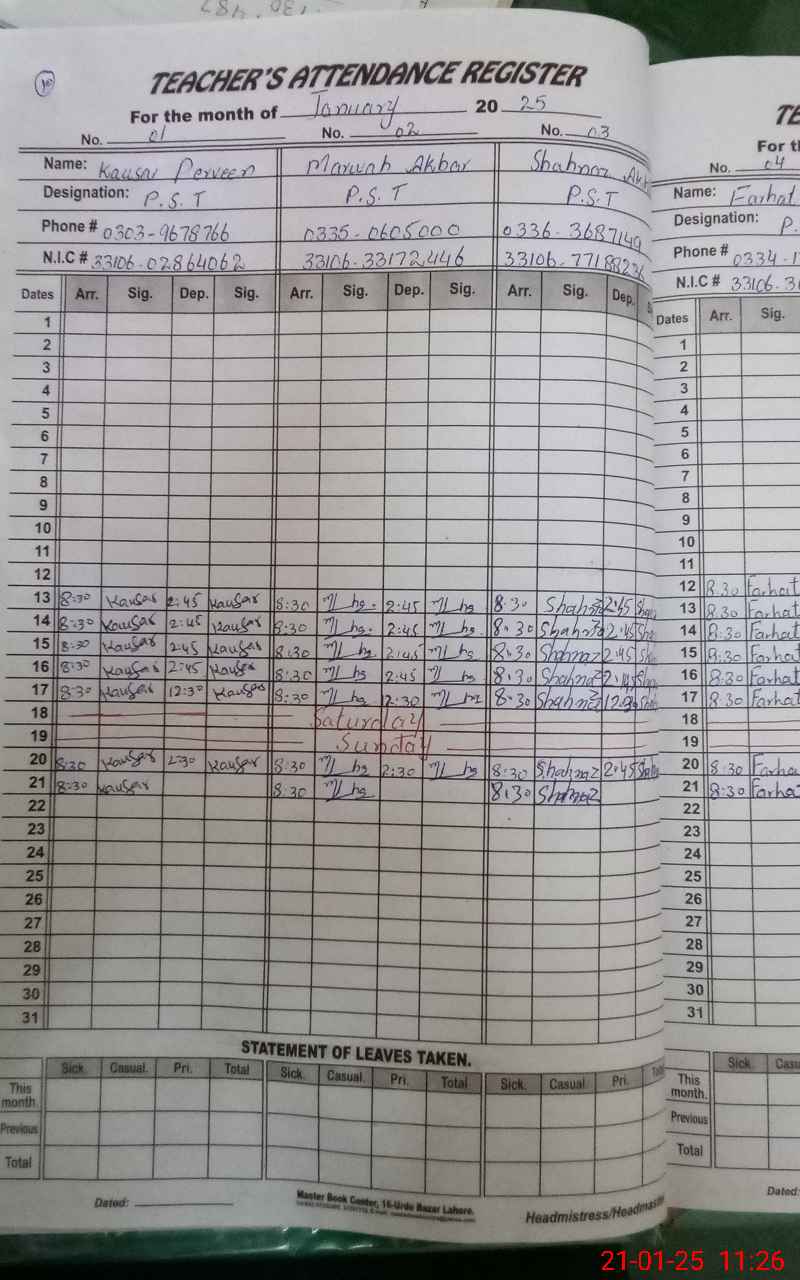 TEACHER'S ATTENDANCE REGISTER
For the month of January 20 25
No. 01 No. 02 No. 03
Name: Kausar Perveen Marwah Akbar Shahnaz
Designation: P.S.T P.S.T P.S.T
Phone # 0303-9678766 0335-0605000 0336-3687149
N.I.C # 33106-02864062 33106-33172446 33106-77188236
Dates Arr. Sig. Dep. Sig. Arr. Sig. Dep. Sig. Arr. Sig. Dep.
1
2
3
4
5
6
7
8
9
10
11
12
13 8:30 Kausar 2:45 Kausar 8:30 2:45 8.30 Shahnaz 2.45
14 8:30 Kausar 2:45 Kausar 8:30 2:45 8.30 Shahnaz 2.45
15 8:30 Kausar 2:45 Kausar 8:30 2:45 8.30 Shahnaz 2:45
16 8:30 Kausar 2:45 Kausar 8:30 2:45 8.30 Shahnaz 2.45
17 8:30 Kausar 12:30 Kausar 8:30 2:30 8.30 Shahnaz 12.30
18 Saturday
19 Sunday
20 8:30 Kausar 2:30 Kausar 8:30 2:30 8:30 Shahnaz 2.45
21 8:30 Kausar 8:30 8:30 Shahnaz
22
23
24
25
26
27
28
29
30
31
STATEMENT OF LEAVES TAKEN.
Sick. Casual. Pri. Total Sick. Casual. Pri. Total Sick. Casual Pri.
This month.
Previous
Total
Dated:
Master Book Center, 16-Urdu Bazar Lahore.
Headmistress/Headmaster
TE
For th
No. 04
Name: Farhat
Designation: P.
Phone # 0334-1
N.I.C # 33106-3
Dates Arr. Sig.
1
2
3
4
5
6
7
8
9
10
11
12 8.30 Farhat
13 8.30 Farhat
14 8:30 Farhat
15 8:30 Farhat
16 8:30 Farhat
17 8:30 Farhat
18
19
20 8:30 Farha
21 8:30 Farhat
22
23
24
25
26
27
28
29
30
31
Sick Casu
This month.
Previous
Total
Dated:
21-01-25 11:26